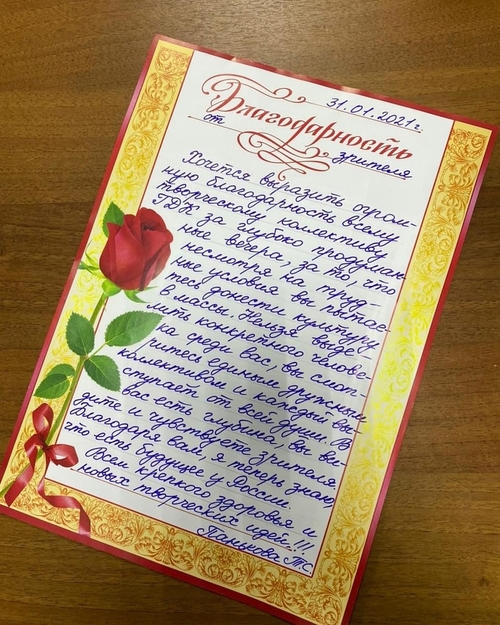 31.01.2021г.
Благодарность
от зрителя
Хочется выразить огром-
ную благодарность всему
творческому коллективу
ГДК за глубоко продуман-
ные вечера, за то, что
несмотря на труд-
ные условия вы пытае-
тесь донести культуру
в массы. Нельзя выде-
лить конкретного челове-
ка среди вас, вы смот-
ритесь единым дружным
коллективом и каждый вы-
ступает от всей души. В
вас есть глубина, вы ви-
дите и чувствуете зрителя.
Благодаря вам, я теперь знаю,
что есть будущее у России.
Всем крепкого здоровья и
новых творческих идей!!!
Панькова Т.С.